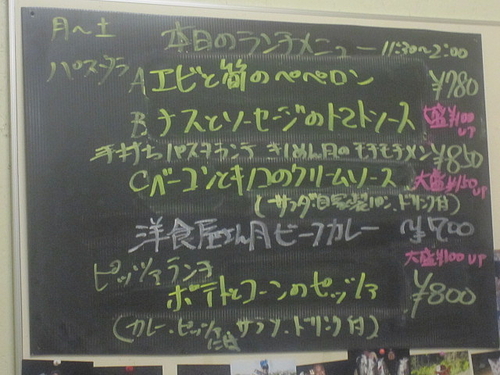 月〜土 本日のランチメニュー 11:30〜2:00
パスタランチ
A エビと筍のペペロン ¥780
B ナスとソーセージのトマトソース 大盛¥100 UP
手打ちパスタランチ きしめん風のモチモチメン ¥850
C ベーコンときのこのクリームソース 大盛¥150UP
(サラダ.自家製パン.ドリンク付)
洋食屋さん風ビーフカレー ¥700
大盛¥100 UP
ピッツァランチ
ポテトとコーンのピッツァ ¥800
(カレー.ピッツァには サラダ.ドリンク付)